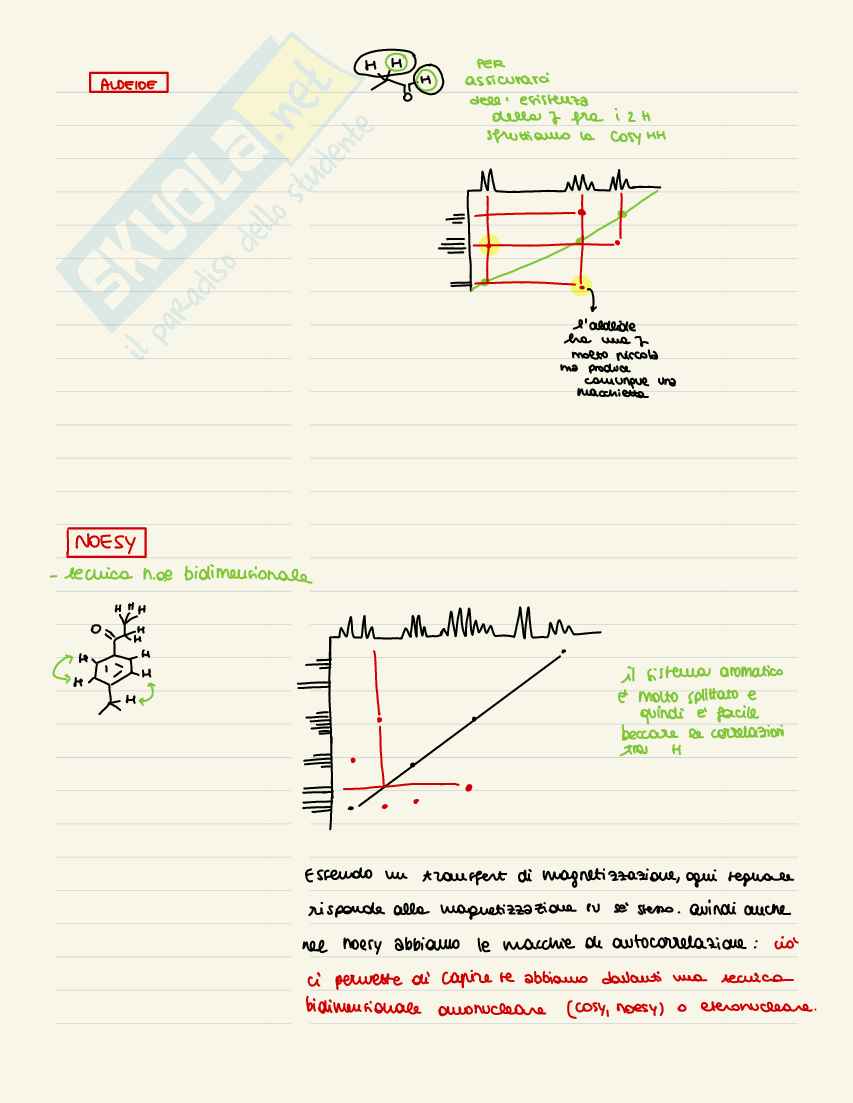 ALDEIDE
H H
H
O
PER
assicurarci
dell' esistenza
della J fra i 2 H
sfruttiamo la COSY HH
SKUOLA.net
il paradiso dello studente
l'aldeide
ha una J
molto piccola
ma produce
comunque una
macchietta
NOESY
- tecnica n.oe bidimensionale
H H H
O H
H
H H
H H
H
il sistema aromatico
e' molto splittato e
quindi e' facile
beccare le correlazioni
tra H
Essendo un transfert di magnetizzazione, ogni segnale
risponde alla magnetizzazione su se' stesso. Quindi anche
nel noesy abbiamo le macchie di autocorrelazione: cio'
ci permette di capire se abbiamo davanti una tecnica
bidimensionale omonucleare (cosy, noesy) o eteronucleare.